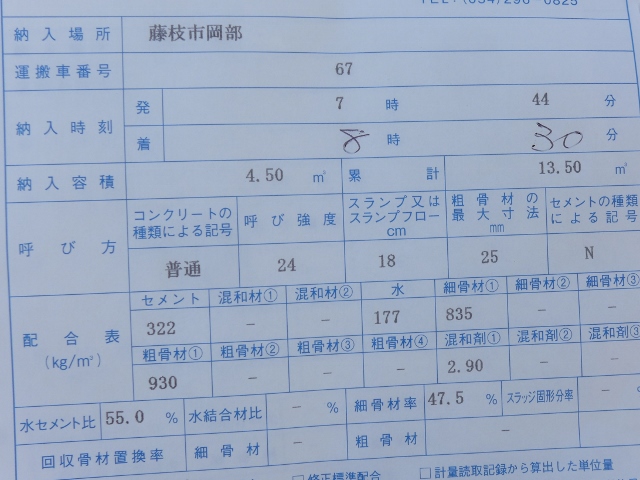 納入場所 藤枝市岡部
運搬車番号 67
納入時刻 発 7 時 44 分
着 8 時 30 分
納入容積 4.50 m³ 累計 13.50 m³
呼び方 コンクリートの種類による記号 呼び強度 スランプ又はスランプフロー cm 粗骨材の最大寸法 mm セメントの種類による記号
普通 24 18 25 N
配合表 (kg/m³) セメント 混和材① 混和材② 水 細骨材① 細骨材② 細骨材③
322 − − 177 835 − −
粗骨材① 粗骨材② 粗骨材③ 粗骨材④ 混和剤① 混和剤② 混和剤③
930 − − − 2.90 − −
水セメント比 55.0 % 水結合材比 − % 細骨材率 47.5 % スラッジ固形分率 −
回収骨材置換率 細骨材 − 粗骨材 −
□ 修正標準配合 □ 計量読取記録から算出した単位量